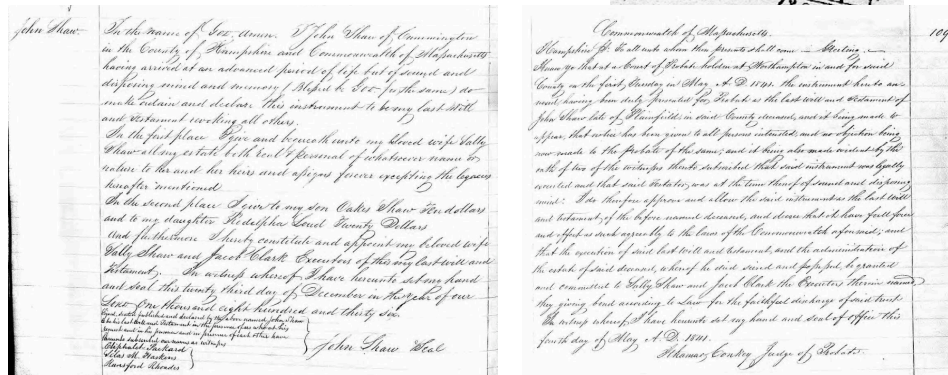 John Shaw.
In the name of God, Amen. I John Shaw of Cummington
in the County of Hampshire and Commonwealth of Massachusetts
having arrived at an advanced period of life but of sound and
disposing mind and memory (Blessed be God for the same) do
make ordain and declare this instrument to be my last Will
and Testament revoking all others.
In the first place I give and bequeath unto my beloved wife Sally
Shaw all my estate both real & personal of whatsoever name or
nature to her and her heirs and assigns forever excepting the legacies
hereafter mentioned
In the second place I give to my son Oakes Shaw Ten dollars
and to my daughter Rodolpha Loud Twenty Dollars
And furthermore I hereby constitute and appoint my beloved wife
Sally Shaw and Jacob Clark Executors of this my last will and
Testament. In witness whereof I have hereunto set my hand
and seal this twenty third day of December in the year of our
Lord One thousand eight hundred and thirty six.
Signed, sealed, published and declared by the above named John Shaw
to be his last Will and Testament in the presence of us who at his
request and in his presence and in presence of each other have
hereunto subscribed our names as witnesses
Eliphalet Packard
Silas M. Haskens
Ransford Rhoades
John Shaw Seal
109
Commonwealth of Massachusetts.
Hampshire Ss. To all unto whom these presents shall come Greeting.
Know ye that at a Court of Probate holden at Northampton in and for said
County on the first Tuesday in May A. D. 1841. the instrument hereto an-
nexed having been duly presented for Probate as the last will and Testament of
John Shaw late of Plainfield in said County deceased, and it being made to
appear, that notice has been given to all persons interested, and no objection being
now made to the Probate of the same; and it being also made evident by the
oath of two of the witnesses thereto subscribed that said instrument was legally
executed and that said Testator, was at the time thereof of sound and disposing
mind: I do therefore approve and allow the said instrument as the last will
and testament, of the before named deceased, and decree that it have full force
and effect as such agreeably to the laws of the Commonwealth aforesaid; and
that the execution of said last Will and testament, and the administration of
the estate of said deceased, whereof he died seized and possessed, be granted
and committed to Sally Shaw and Jacob Clark the Executors therein named
they giving bond according to Law for the faithful discharge of said trust
In witness whereof, I have hereunto set my hand and seal of office this
fourth day of May A. D. 1841.
Ithamar Conkey Judge of Probate.